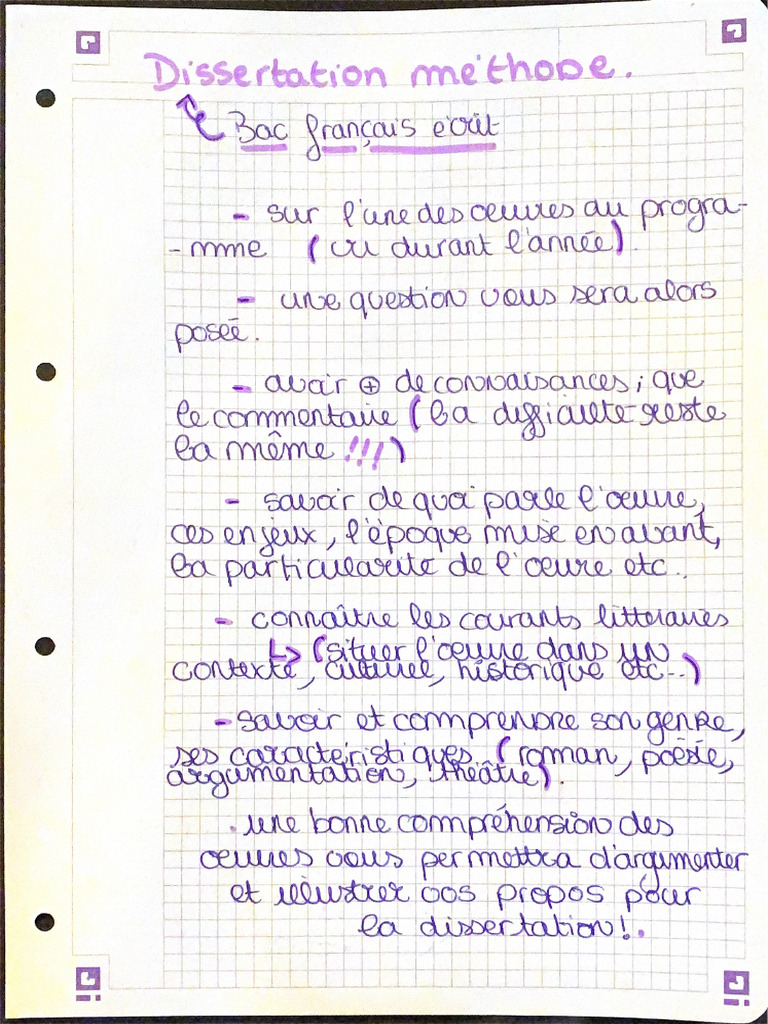 Dissertation méthode.
Bac français écrit
- sur l'une des oeuvres au progra-
-mme (vu durant l'année).
- une question vous sera alors
posée.
- avoir ⊕ de connaisances, que
le commentaire (la difficulté reste
la même !!!)
- savoir de quoi parle l'oeuvre,
ces enjeux, l'époque mise en avant,
la particularité de l'oeuvre etc..
- connaître les courants littéraires
↳ (situer l'oeuvre dans un
contexte, culturel, historique etc..)
- savoir et comprendre son genre,
ses caractéristiques (roman, poésie,
argumentation, théâtre).
. une bonne compréhension des
oeuvres vous permettra d'argumenter
et illustrer vos propos pour
la dissertation!.